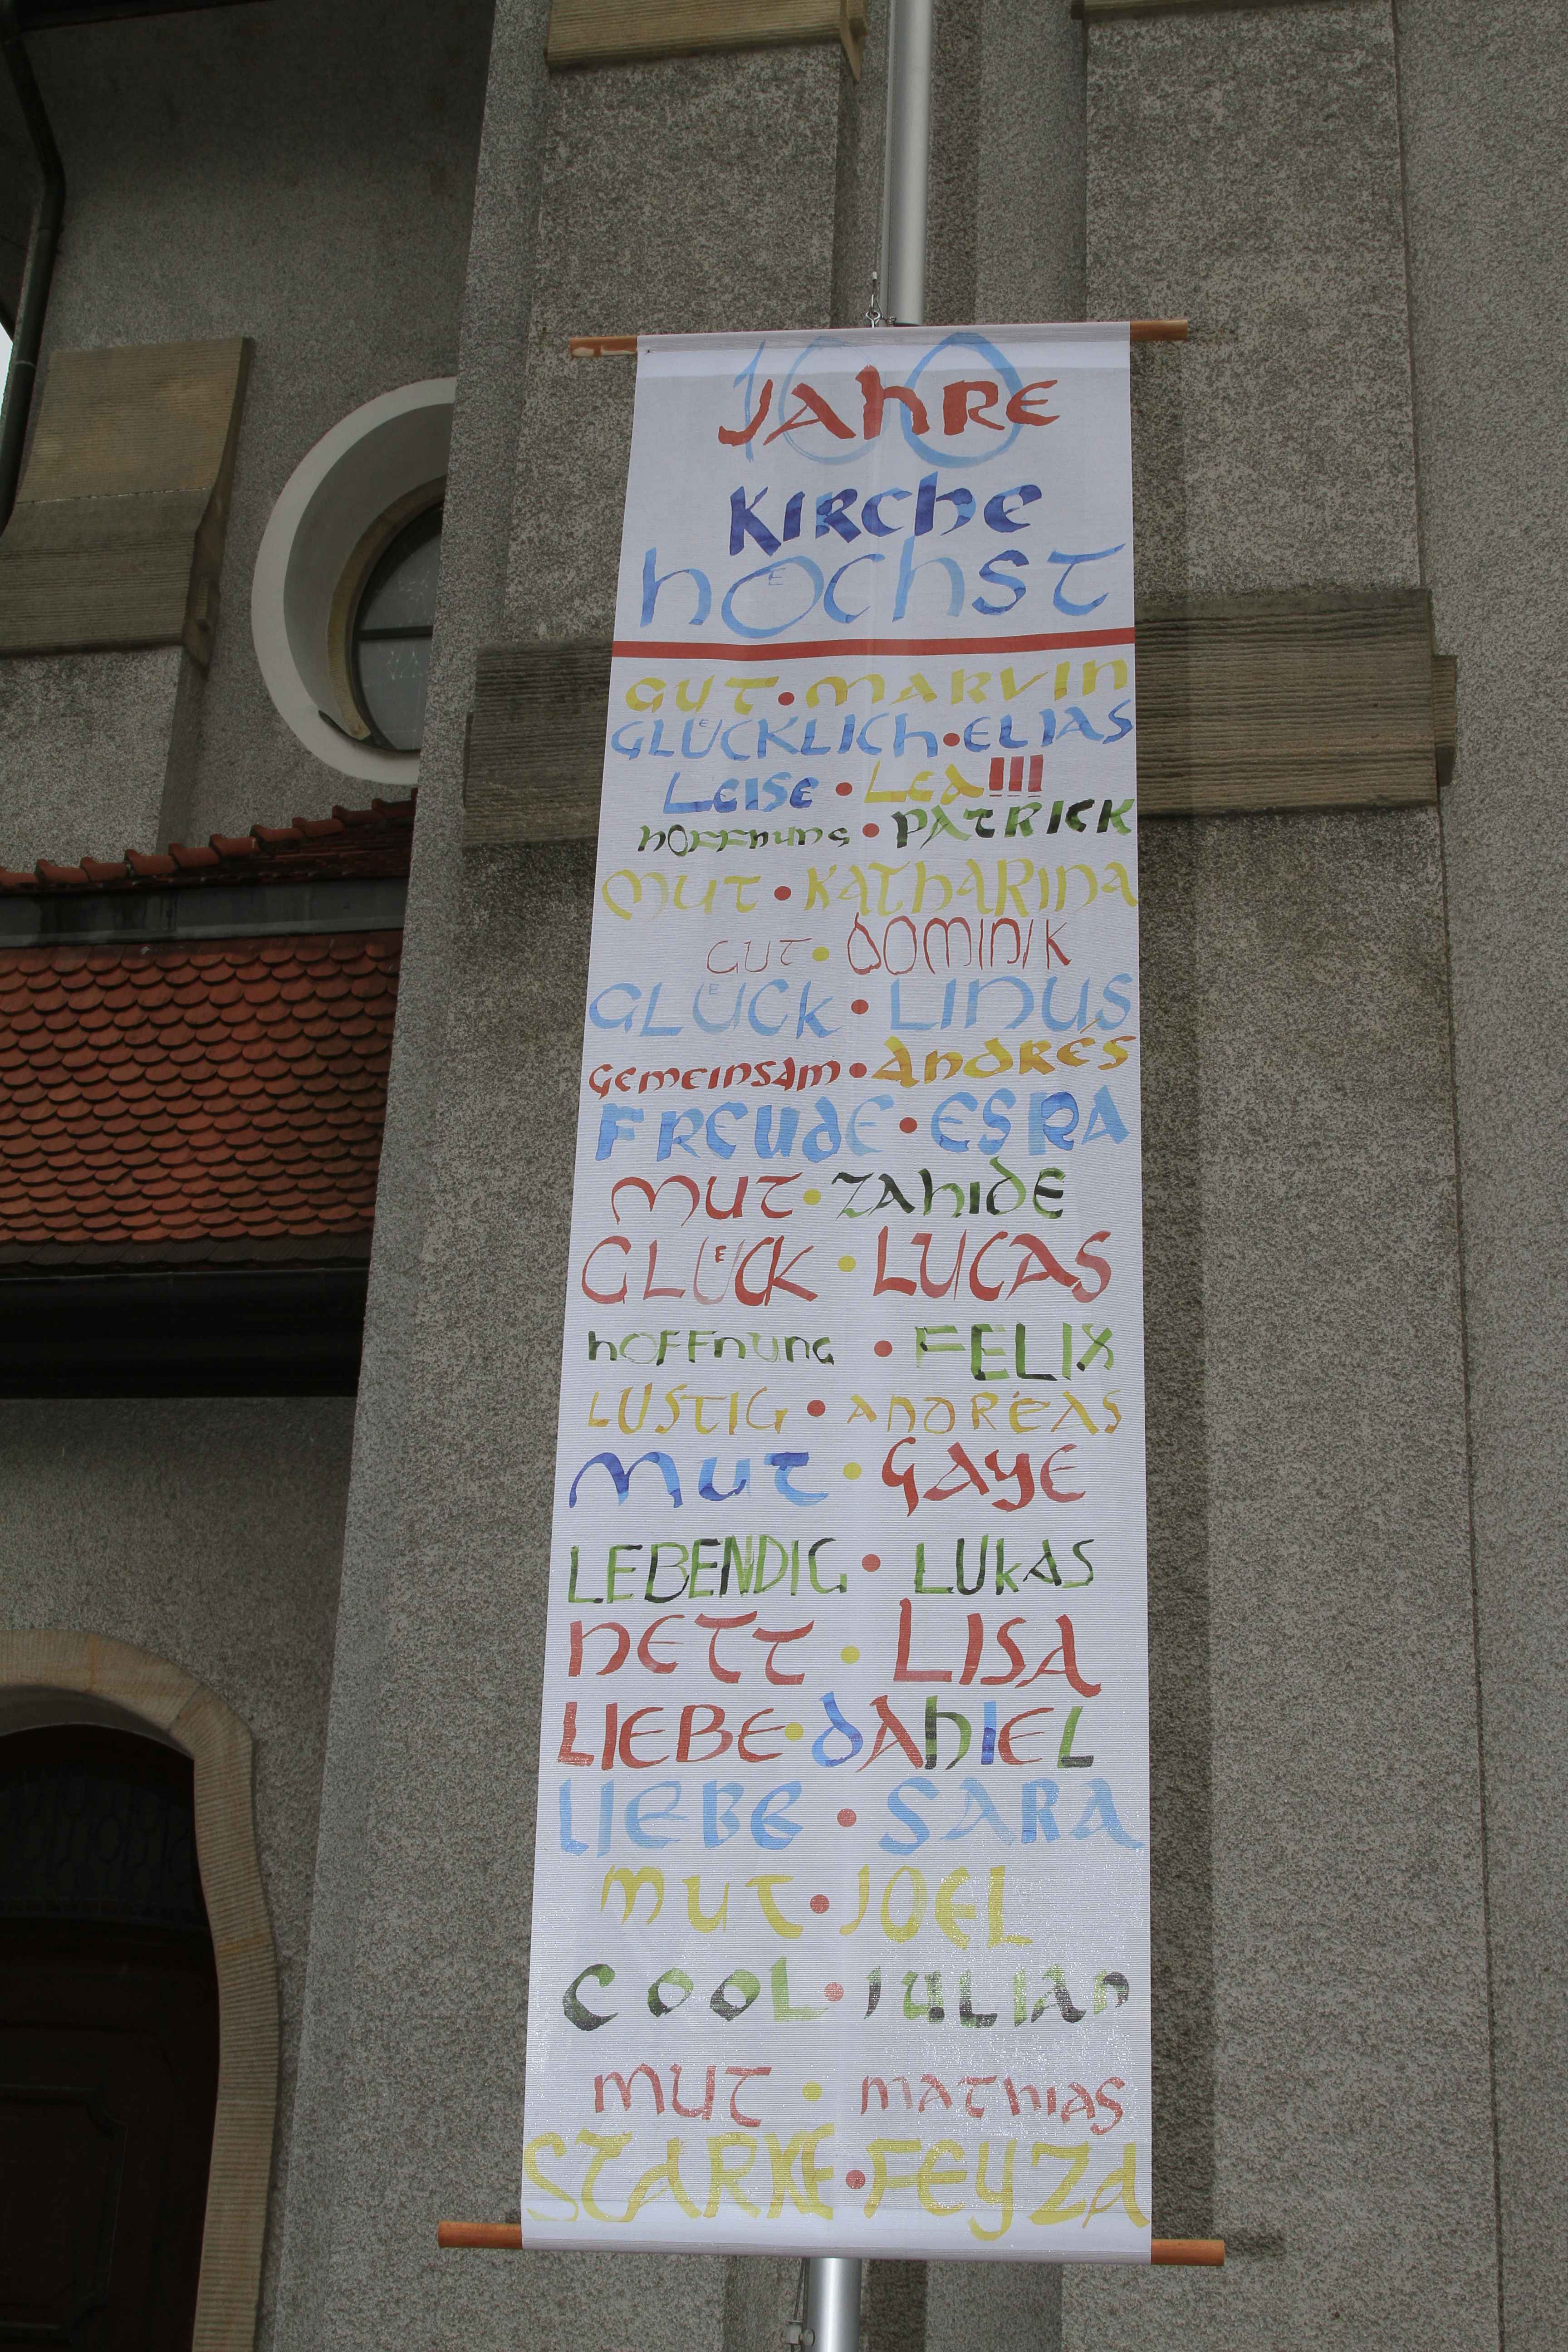 100
JAhRE
KIRche
hOEchST
GUT • MARVIN
GLUECKLICh • ELIAS
LEISE • LEA!!!
hOFFNUNG • PATRICK
MUT • KAThARINA
GUT • DOMINIK
GLUECK • LINUS
GEMEINSAM • ANDRÉS
FREUDE • ESRA
MUT • ZAhIDE
GLUECK • LUCAS
hOFFNUNG • FELIX
LUSTIG • ANDREAS
MUT • GAYE
LEBENDIG • LUKAS
NETT • LISA
LIEBE • DANIEL
LIEBE • SARA
MUT • JOEL
COOL • JULIAN
MUT • MAThIAS
STARKE • FEYZA